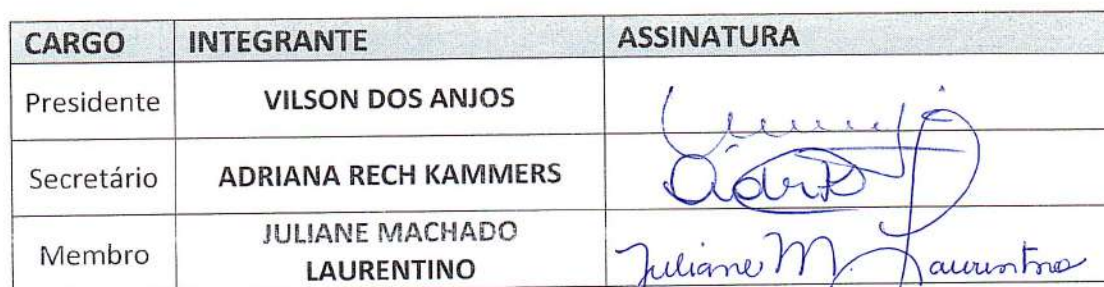 CARGO INTEGRANTE ASSINATURA
Presidente VILSON DOS ANJOS
Secretário ADRIANA RECH KAMMERS
JULIANE MACHADO
Membro LAURENTINO Juliane M. Laurentino